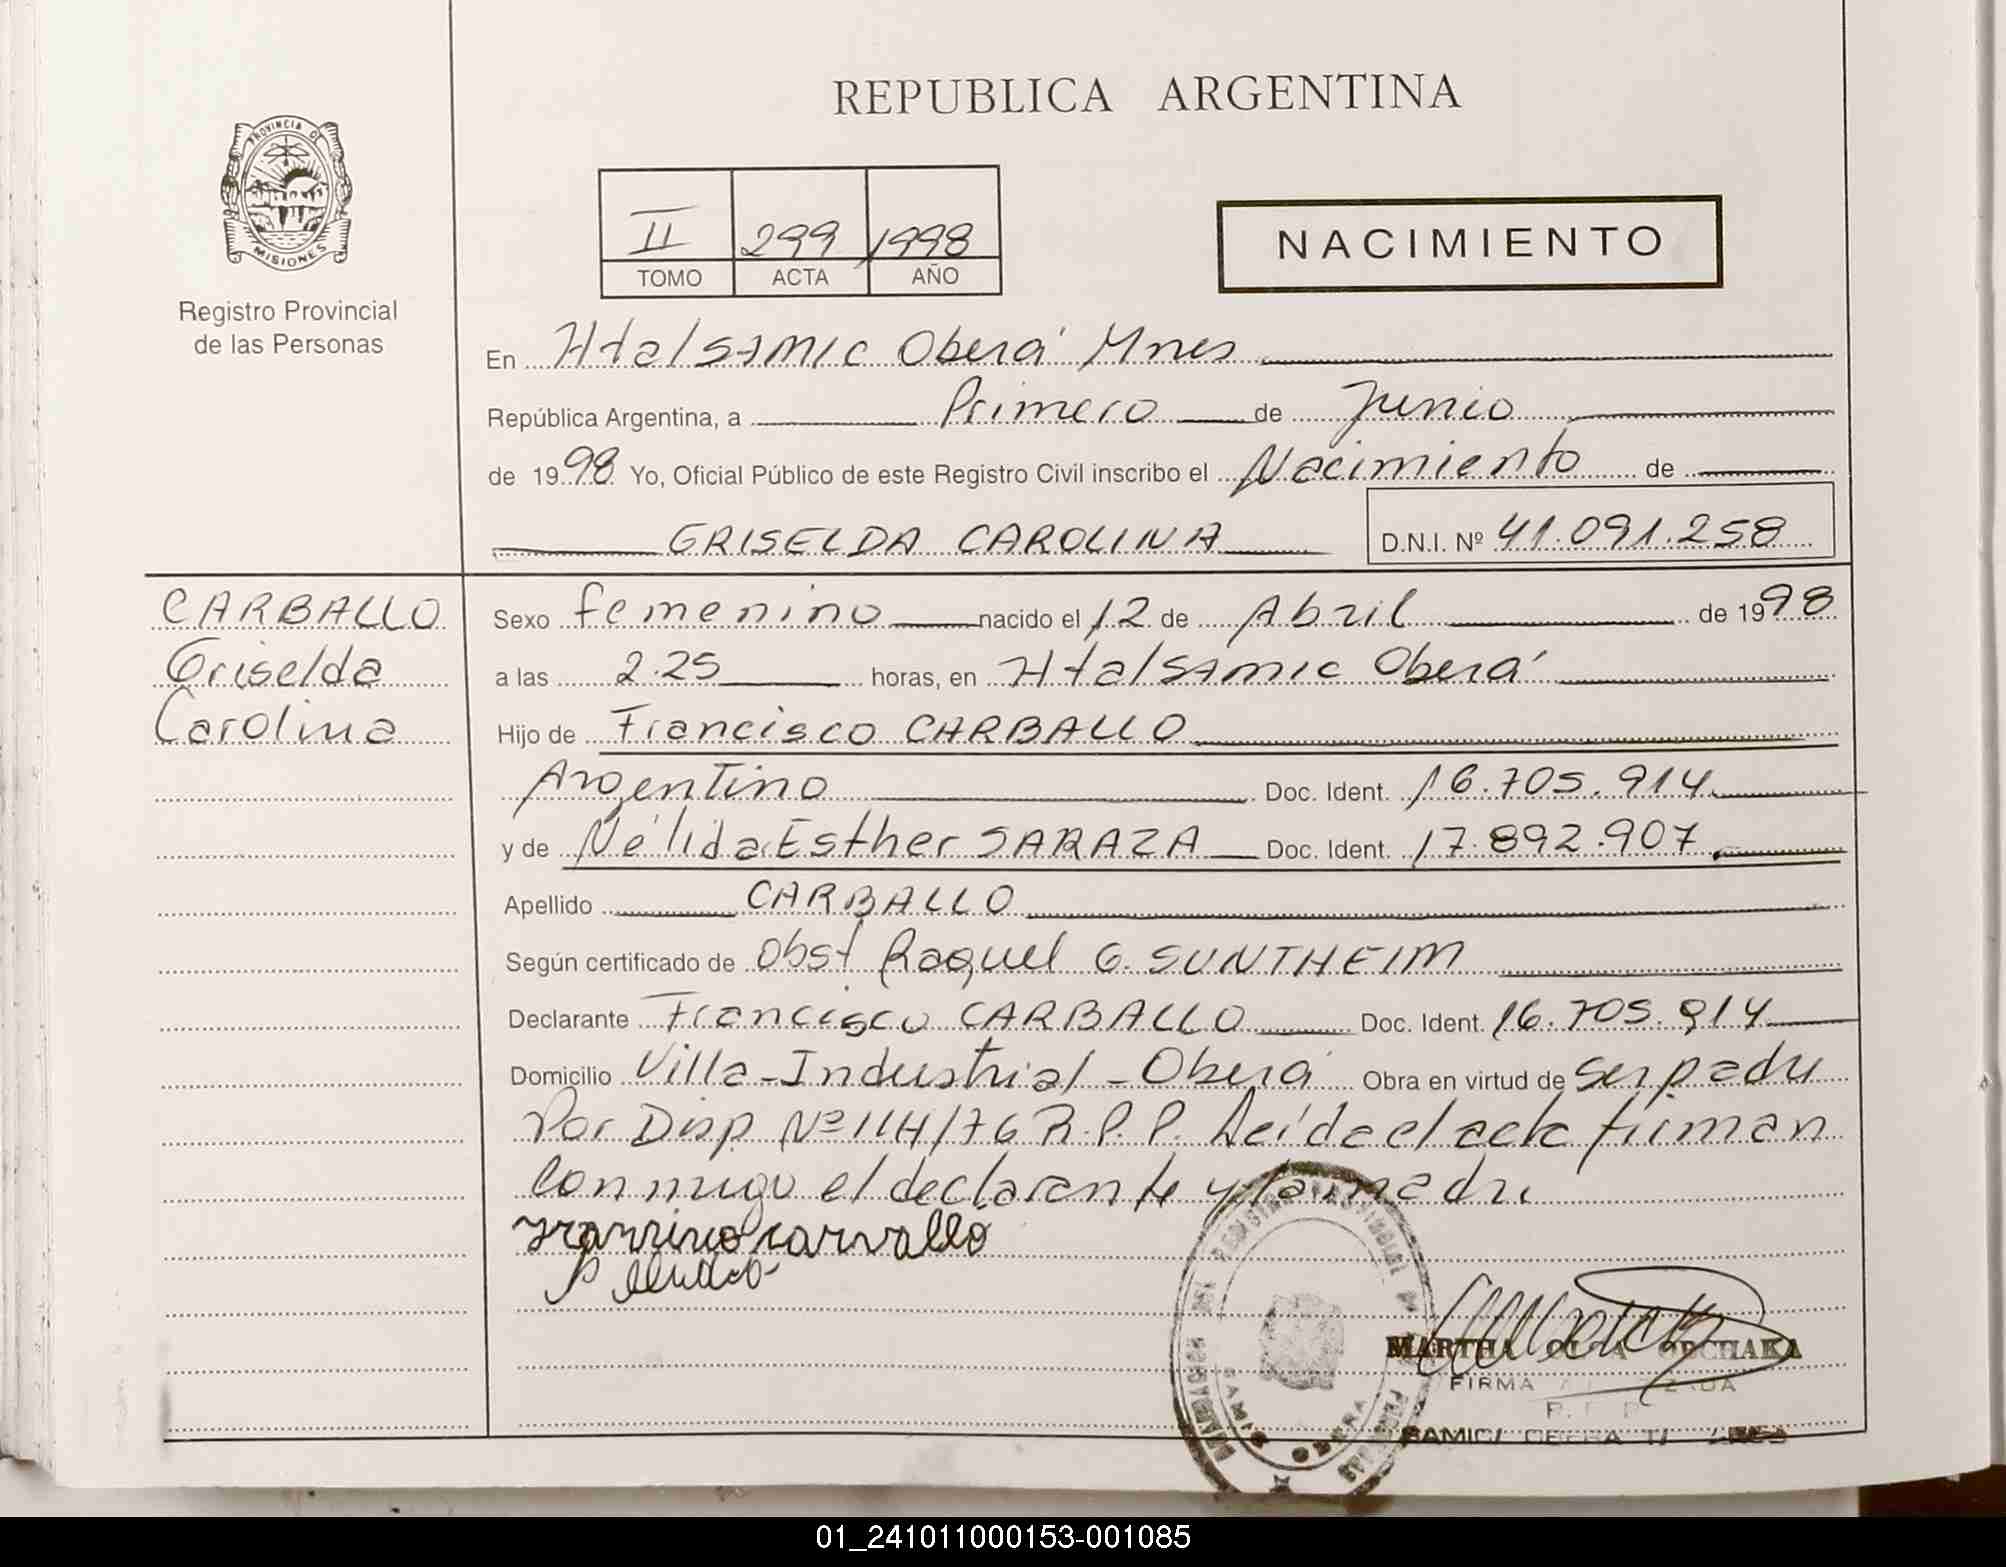 REPUBLICA ARGENTINA
PROVINCIA DE
MISIONES
Registro Provincial
de las Personas
II 299 1998
TOMO ACTA AÑO
NACIMIENTO
En Htal Samic Oberá Mnes
República Argentina, a Primero de Junio
de 1998 Yo, Oficial Público de este Registro Civil inscribo el Nacimiento de
GRISELDA CAROLINA D.N.I. Nº 41.091.258
CARBALLO
Griselda
Carolina
Sexo femenino nacido el 12 de Abril de 1998
a las 2.25 horas, en Htal Samic Oberá
Hijo de Francisco CARBALLO
Argentino Doc. Ident. 16.705.914
y de Nélida Esther SARAZA Doc. Ident. 17.892.907
Apellido CARBALLO
Según certificado de Obst Raquel G. SUNTHEIM
Declarante Francisco CARBALLO Doc. Ident. 16.705.914
Domicilio Villa-Industrial-Oberá Obra en virtud de ser padre
Por Disp Nº 114/76 R.P.P. Leída el acta firman
conmigo el declarante y la madre
carvallo
MARTHA
FIRMA
SAMIC OBERA
01_241011000153-001085